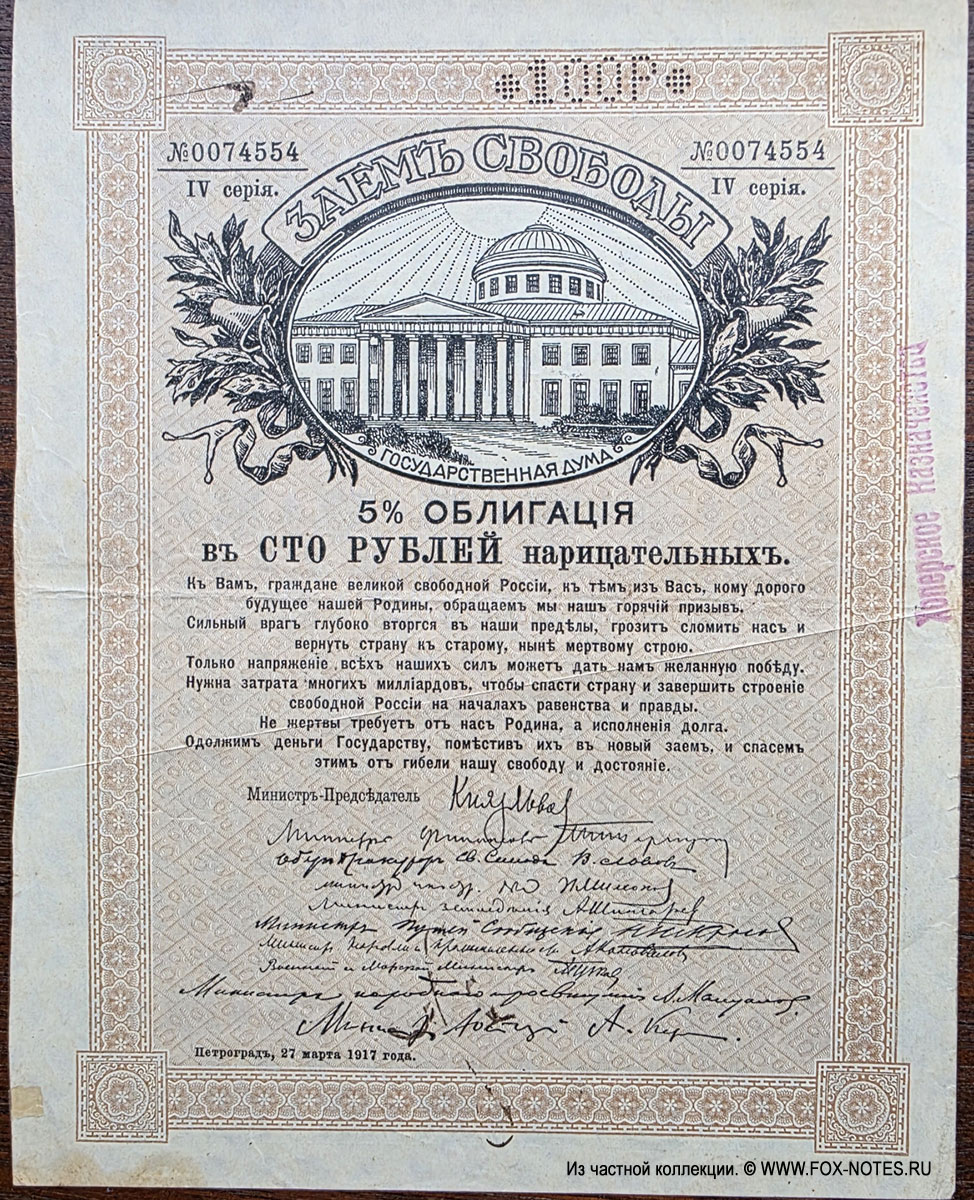 *100Р*
№0074554 №0074554
IV серія. IV серія.
ЗАЕМЪ СВОБОДЫ
ГОСУДАРСТВЕННАЯ ДУМА
5% ОБЛИГАЦІЯ
въ СТО РУБЛЕЙ нарицательныхъ.
Къ Вамъ, граждане великой свободной Россіи, къ тѣмъ изъ Васъ, кому дорого
будущее нашей Родины, обращаемъ мы нашъ горячій призывъ.
Сильный врагъ глубоко вторгся въ наши предѣлы, грозитъ сломить насъ и
вернуть страну къ старому, нынѣ мертвому строю.
Только напряженіе всѣхъ нашихъ силъ можетъ дать намъ желанную побѣду.
Нужна затрата многихъ милліардовъ, чтобы спасти страну и завершить строеніе
свободной Россіи на началахъ равенства и правды.
Не жертвы требуетъ отъ насъ Родина, а исполненія долга.
Одолжимъ деньги Государству, помѣстивъ ихъ въ новый заемъ, и спасемъ
этимъ отъ гибели нашу свободу и достояніе.
Министръ-Предсѣдатель Князь Львов
Министръ финансовъ
Оберъ Прокуроръ Св. Синода В. Львовъ
Министръ земледѣлія А Шингарев
Министръ Путей Сообщенія Н Некрасов
Министр Торговли и Промышленности А Коновалов
Военный и Морской Министръ
Министръ народного просвѣщенія А. Мануилов.
Петроградъ, 27 марта 1917 года.
Хоперское Казначейство
Из частной коллекции. © WWW.FOX-NOTES.RU